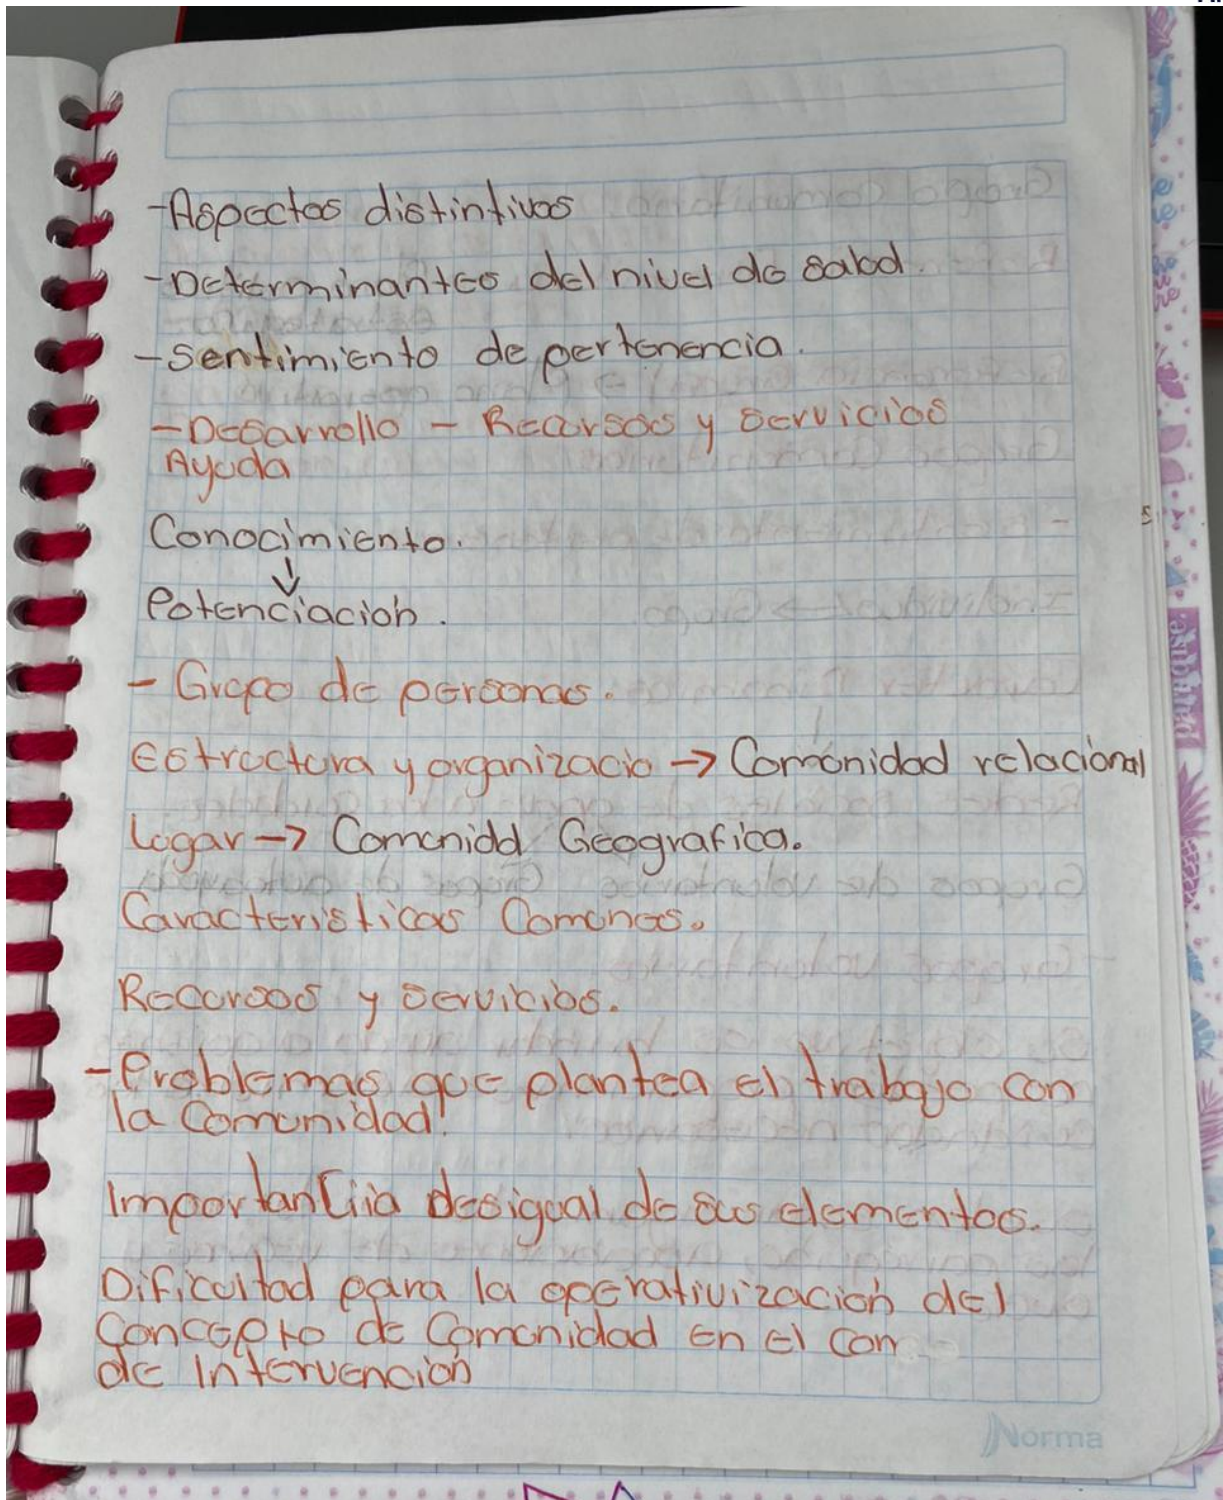 -Aspectos distintivos
-Determinantes del nivel de salud.
-Sentimiento de pertenencia.
-Desarrollo - Recursos y servicios
Ayuda
Conocimiento.
↓
Potenciacion.
- Grupo de personas.
Estructura y organizacio → Comunidad relacional
Lugar → Comunidd Geografica.
Caracteristicas Comunes.
Recursos y servicios.
-Problemas que plantea el trabajo con
la Comunidad!
Importanciia desigual de sus elementos.
Dificultad para la operativización del
Concepto de Comunidad en el con
de intervención
Norma